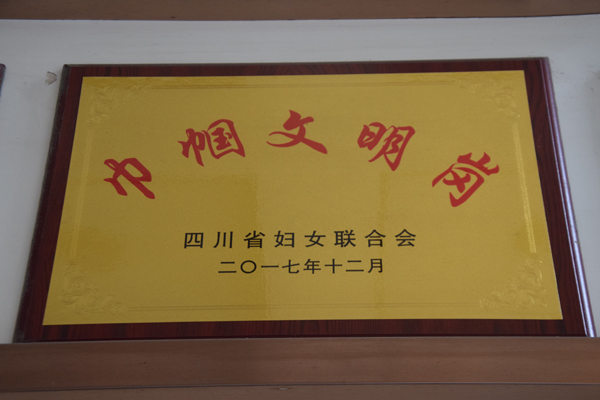 巾帼文明岗
四川省妇女联合会
二〇一七年十二月